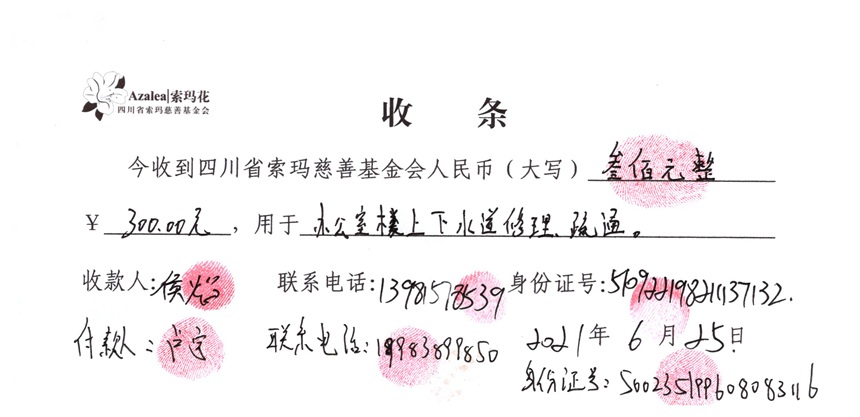 Azalea|索玛花
四川省索玛慈善基金会
收 条
今收到四川省索玛慈善基金会人民币（大写） 叁佰元整
￥ 300.00元 ，用于 办公室楼上下水道修理、疏通。
收款人:侯 联系电话:13981578539 身份证号:
付款人： 联系电话: 2021年 6 月 25日
身份证号: